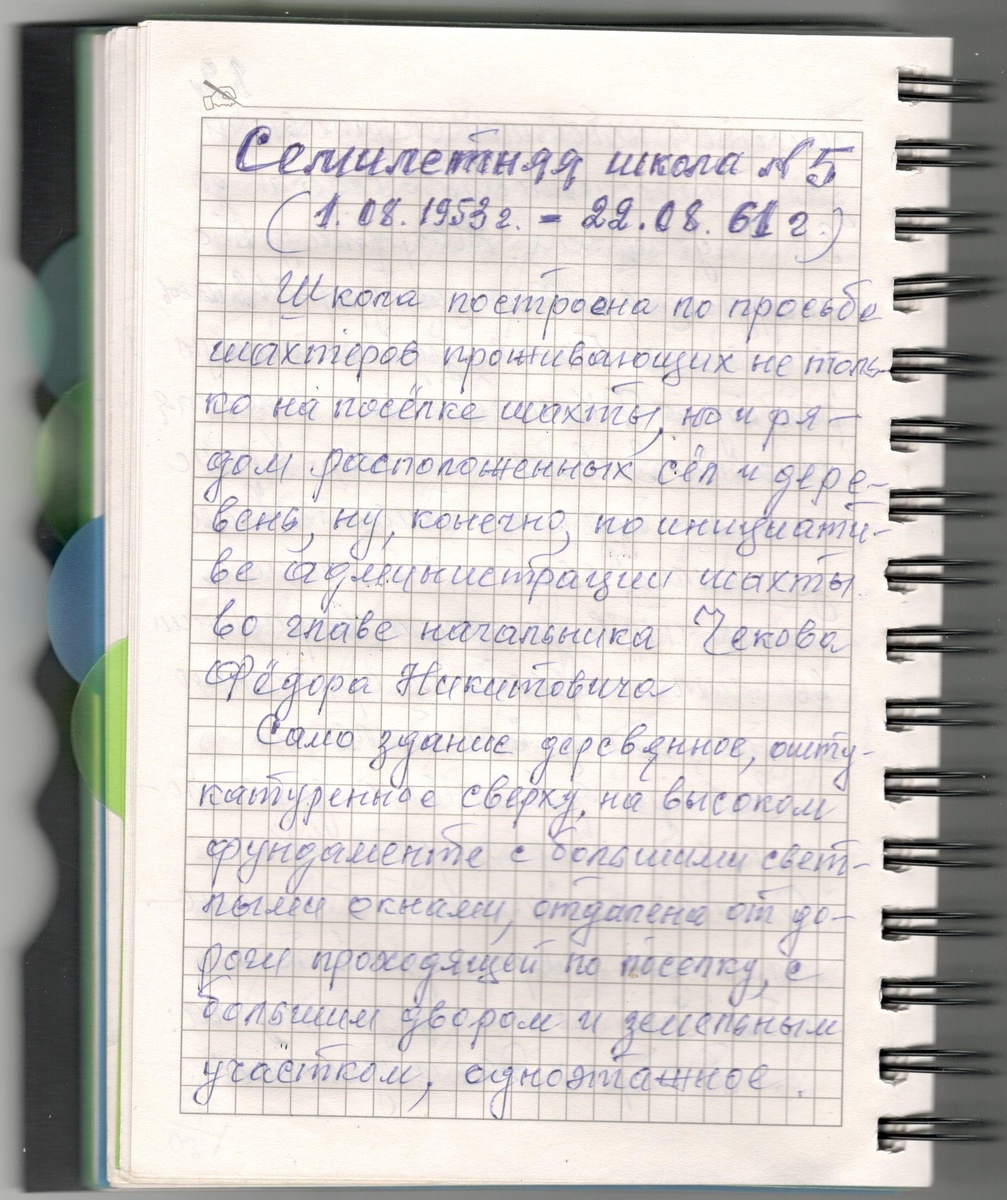 Семилетняя школа №5
(1.08.1953г. - 22.08.61г.)
Школа построена по просьбе
шахтёров проживающих не толь-
ко на посёлке шахты, но и ря-
дом расположенных сёл и дере-
вень, ну, конечно, по инициати-
ве администрации шахты
во главе начальника Чекова
Фёдора Никитовича
Само здание деревянное, ошту-
катуренное сверху, на высоком
фундаменте с большими свет-
лыми окнами, отдалена от до-
роги проходящей по поселку, с
большим двором и земельным
участком, одноэтажное.